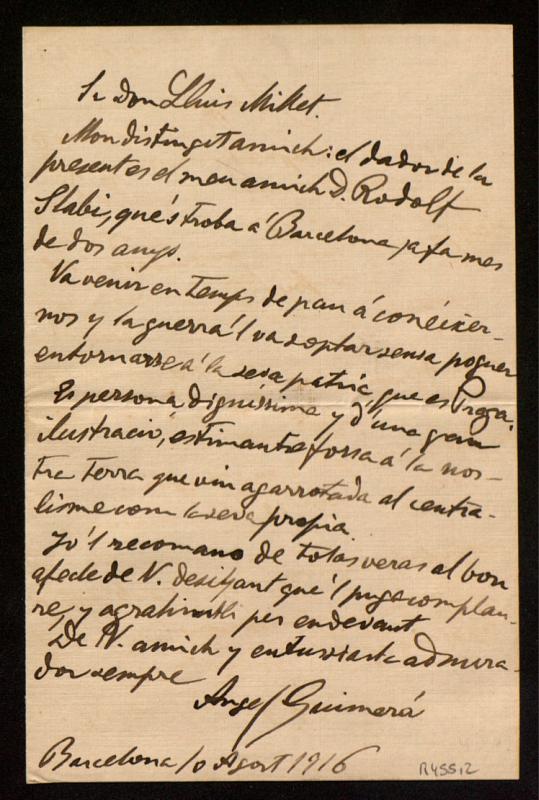 Sr don Lluis Millet.
Mon distingit amich: el dador de la
present es el meu amich D. Rodolf
Slabi, que's troba á Barcelona ja fa mes
de dos anys.
Va venir en temps de pau á conéixer-
nos y la guerra'l va soptar sensa poguer
entornarse á la seva patria que es Praga.
Es persona digníssima y d'una gran
ilustració, estimantse forsa á la nos-
tra terra que viu agarrotada al centra-
lisme com la seva propia.
Jo'l recomano de totas veras al bon
afecte de V. desitjant que'l puga complau-
re, y agrahintli per endevant.
De V. amich y entusiasta admira-
dor sempre
Angel Guimerá
Barcelona 10 Agost 1916
R455,2